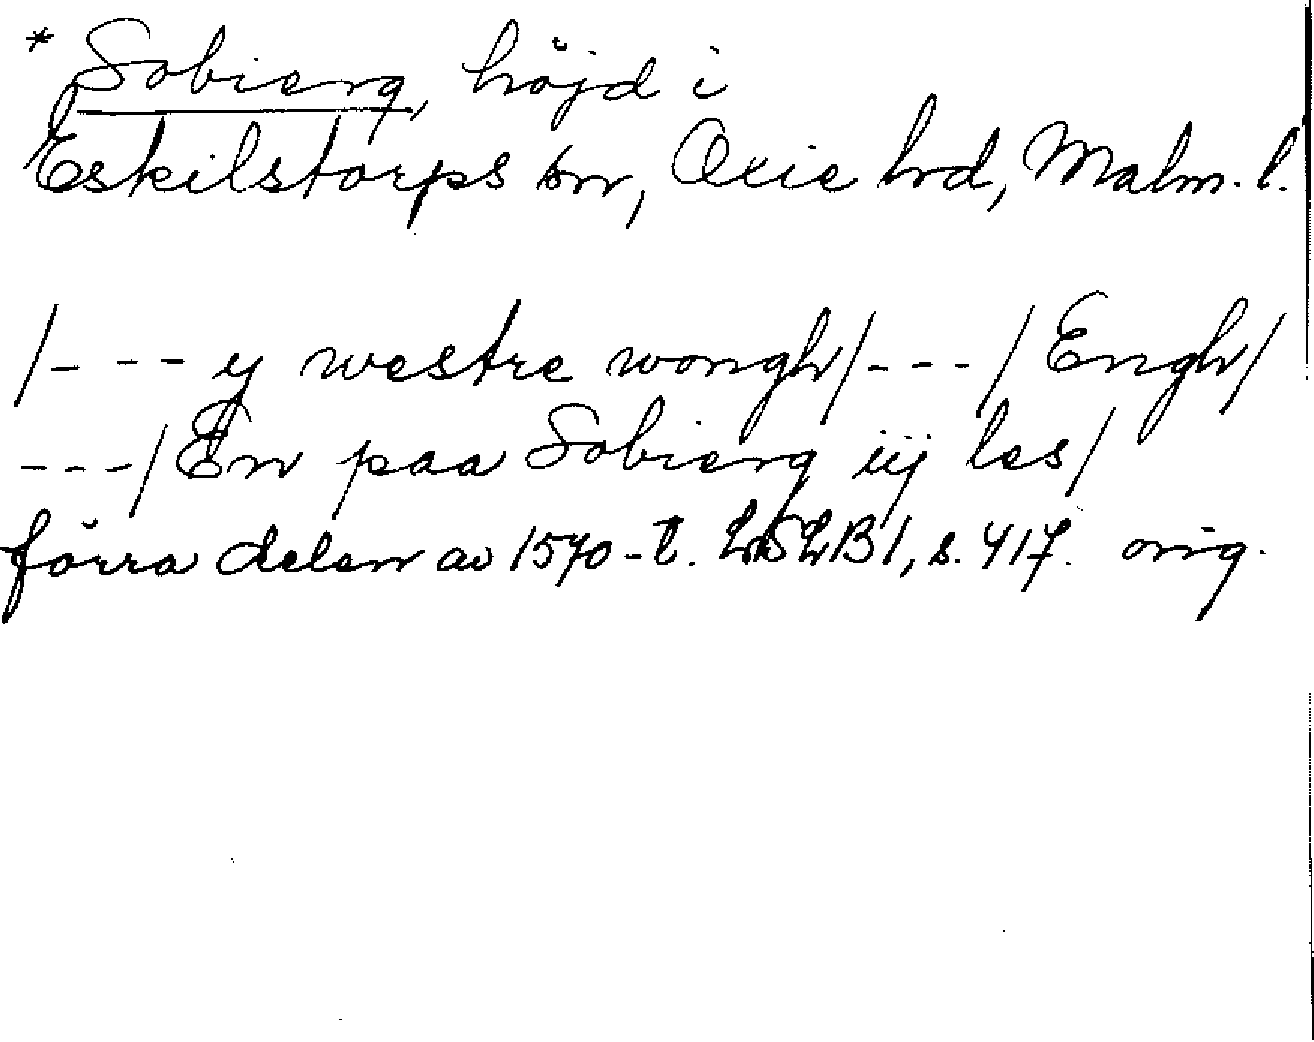 * Sobierg, höjd i
Eskilstorps sn, Oxie hd, Malm. l.
/- - - y westre wongh/- - -/ Engh/
- - -/ En paa Sobierg iij les/
förra delen av 1570-t. LSLB1, s. 417. orig.